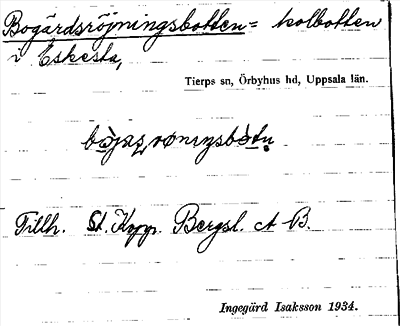 Bogärdsröjningsbotten = kolbotten
i Eskesta,
Tierps sn, Örbyhus hd, Uppsala län.
Tillh. St. Kopp. Bergsl. A B.
Ingegärd Isaksson 1934.